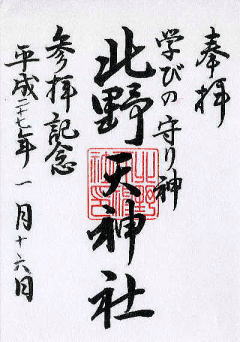 奉拝
学びの守り神
北野天神社
参拝記念
平成二十七年一月十六日